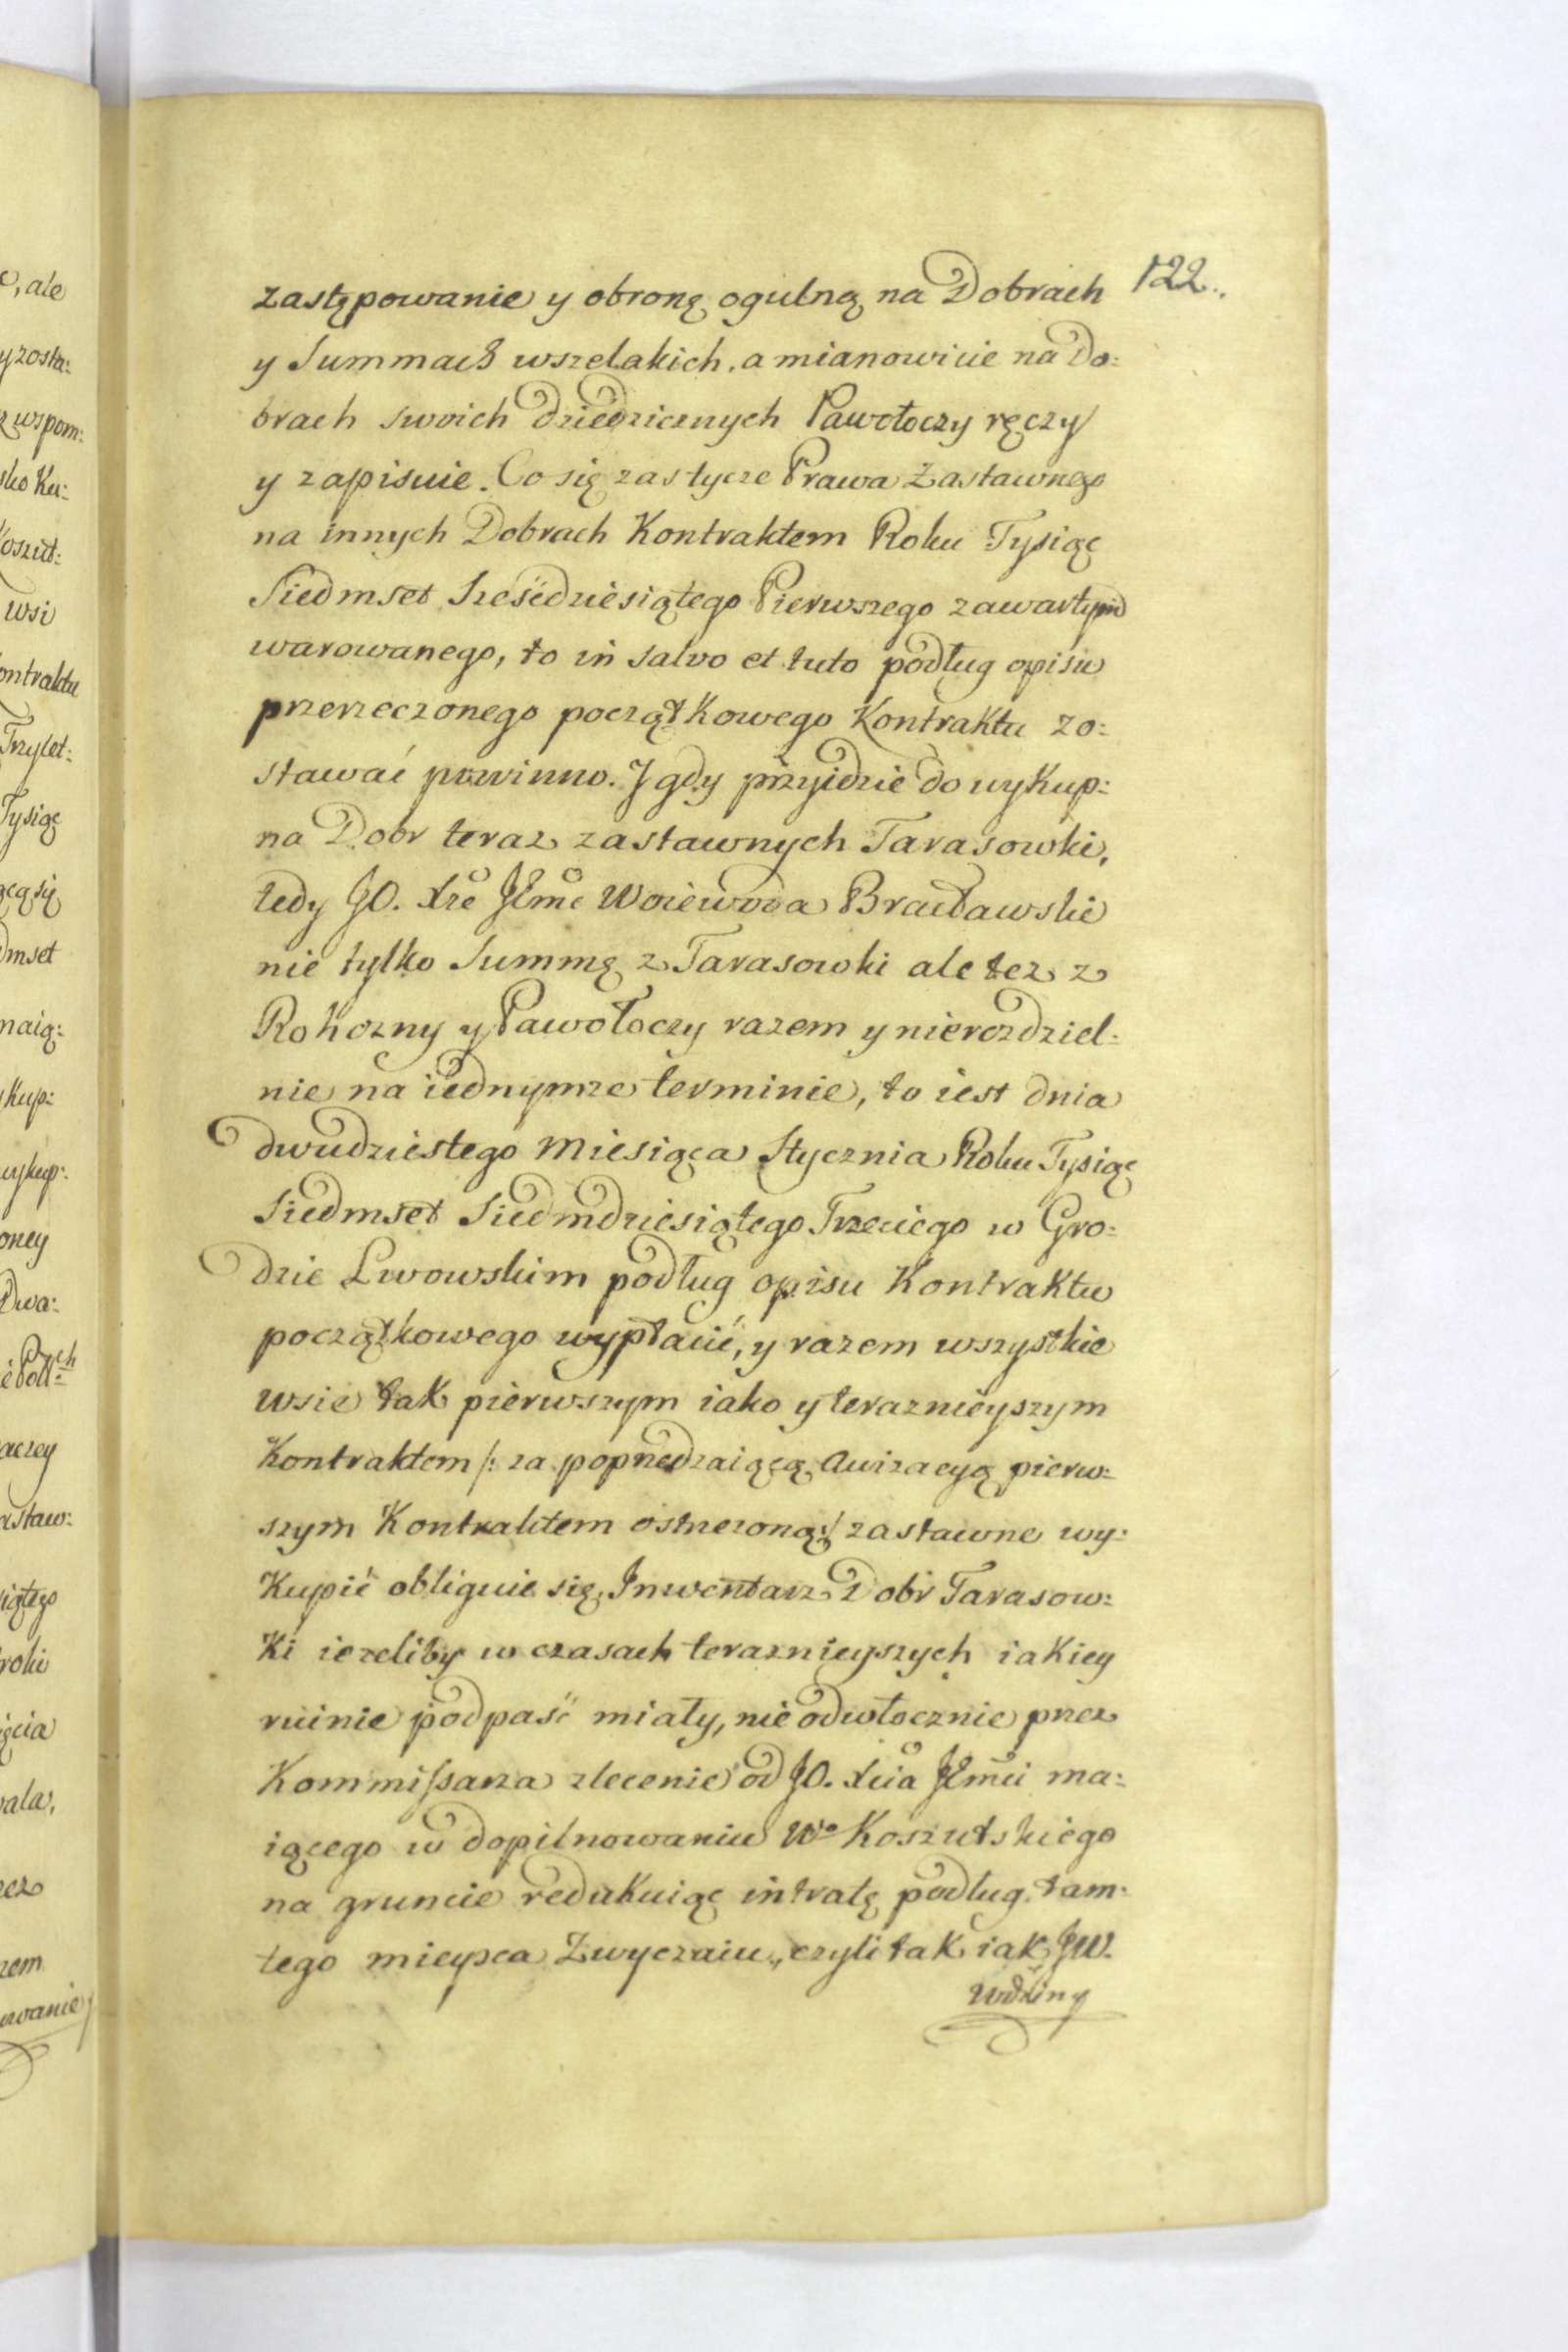 122.
zastępowanie y obronę ogulną na Dobrach
y Summach wszelakich, a mianowicie na Do:
brach swoich dziedzicznych Pawołoczy ręczy
y zapisuie. Co się zastycze Prawa Zastawnego
na innych Dobrach Kontraktem Roku Tysiąc
Siedmset Sześćdziesiątego Pierwszego zawartym
warowanego, to in salvo et tuto podług opisu
przerzeczonego początkowego Kontraktu zo:
stawać powinno. I gdy przyidzie do wykup:
na Dobr teraz zastawnych Tarasowki,
tedy JO. Xże JEmc Woiewoda Bracławski
nie tylko Summę z Tarasowki ale też z
Rohozny y Pawołoczy razem y nierozdziel:
nie na iednymże terminie, to iest dnia
dwudziestego Miesiąca Stycznia Roku Tysiąc
Siedmset Siedmdziesiątego Trzeciego w Gro:
dzie Lwowskim podług opisu Kontraktu
początkowego wypłacić, y razem wszystkie
wsie tak pierwszym iako y teraznieyszym
Kontraktem /: za poprzedzaiącą Awizacyą pierw:
szym Kontraktem ostrzezoną :/ zastawne wy:
kupić obliguie się, Inwentarz Dobr Tarasow:
ki ieżeliby w czasach teraznieyszych iakiey
ruinie podpaść miały, nie odwłocznie przez
Kommissarza zlecenie od JO. Xcia JEmci ma:
iącego w dopilnowaniu Wo Koszutskiego
na gruncie redukuiąc intratę podług tam:
tego mieysca Zwyczaiu, czyli tak iak JW.
Wdziny
c, ale
y zosta:
z wspom:
sko Ku:
Koszut:
wsi
ontraktu
Trzylet:
Tysiąc
ącą się
dmset
maią:
ykup:
wykup:
oney
Dwa:
aczey
astaw:
iątego
roku
ięcia
ała,
zez
zem
owanie